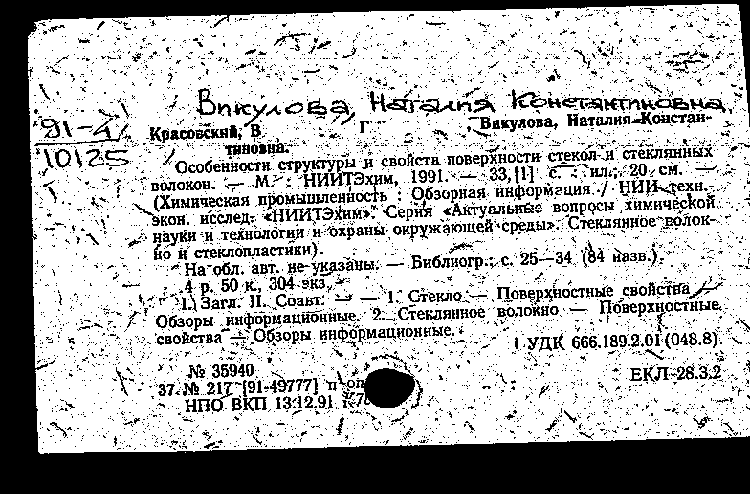 Викулова, Наталия Константиновна,
91-4/10125
Красовский, В Г , Викулова, Наталия Констан-
тиновна.
Особенности структуры и свойств поверхности стекол и стеклянных
волокон. — М. : НИИТЭхим, 1991. — 33,[1] с. : ил.; 20 см. —
(Химическая промышленность : Обзорная информация / НИИ техн.
экон. исслед. «НИИТЭхим». Серия «Актуальные вопросы химической
науки и технологии и охраны окружающей среды». Стеклянное волок-
но и стеклопластики).
На обл. авт. не указаны. — Библиогр.: с. 25—34 (84 назв.).
4 р. 50 к., 304 экз.
I. Загл. II. Соавт. — — 1. Стекло — Поверхностные свойства —
Обзоры информационные. 2. Стеклянное волокно — Поверхностные
свойства — Обзоры информационные.
УДК 666.189.2.01(048.8)
№ 35940
37. № 217 [91-49777] п оп
ЕКЛ 28.3.2
НПО ВКП 13.12.91